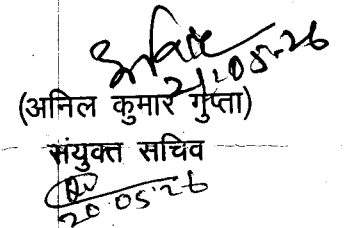 21.05.26
(अनिल कुमार गुप्ता)
संयुक्त सचिव
20.05.26